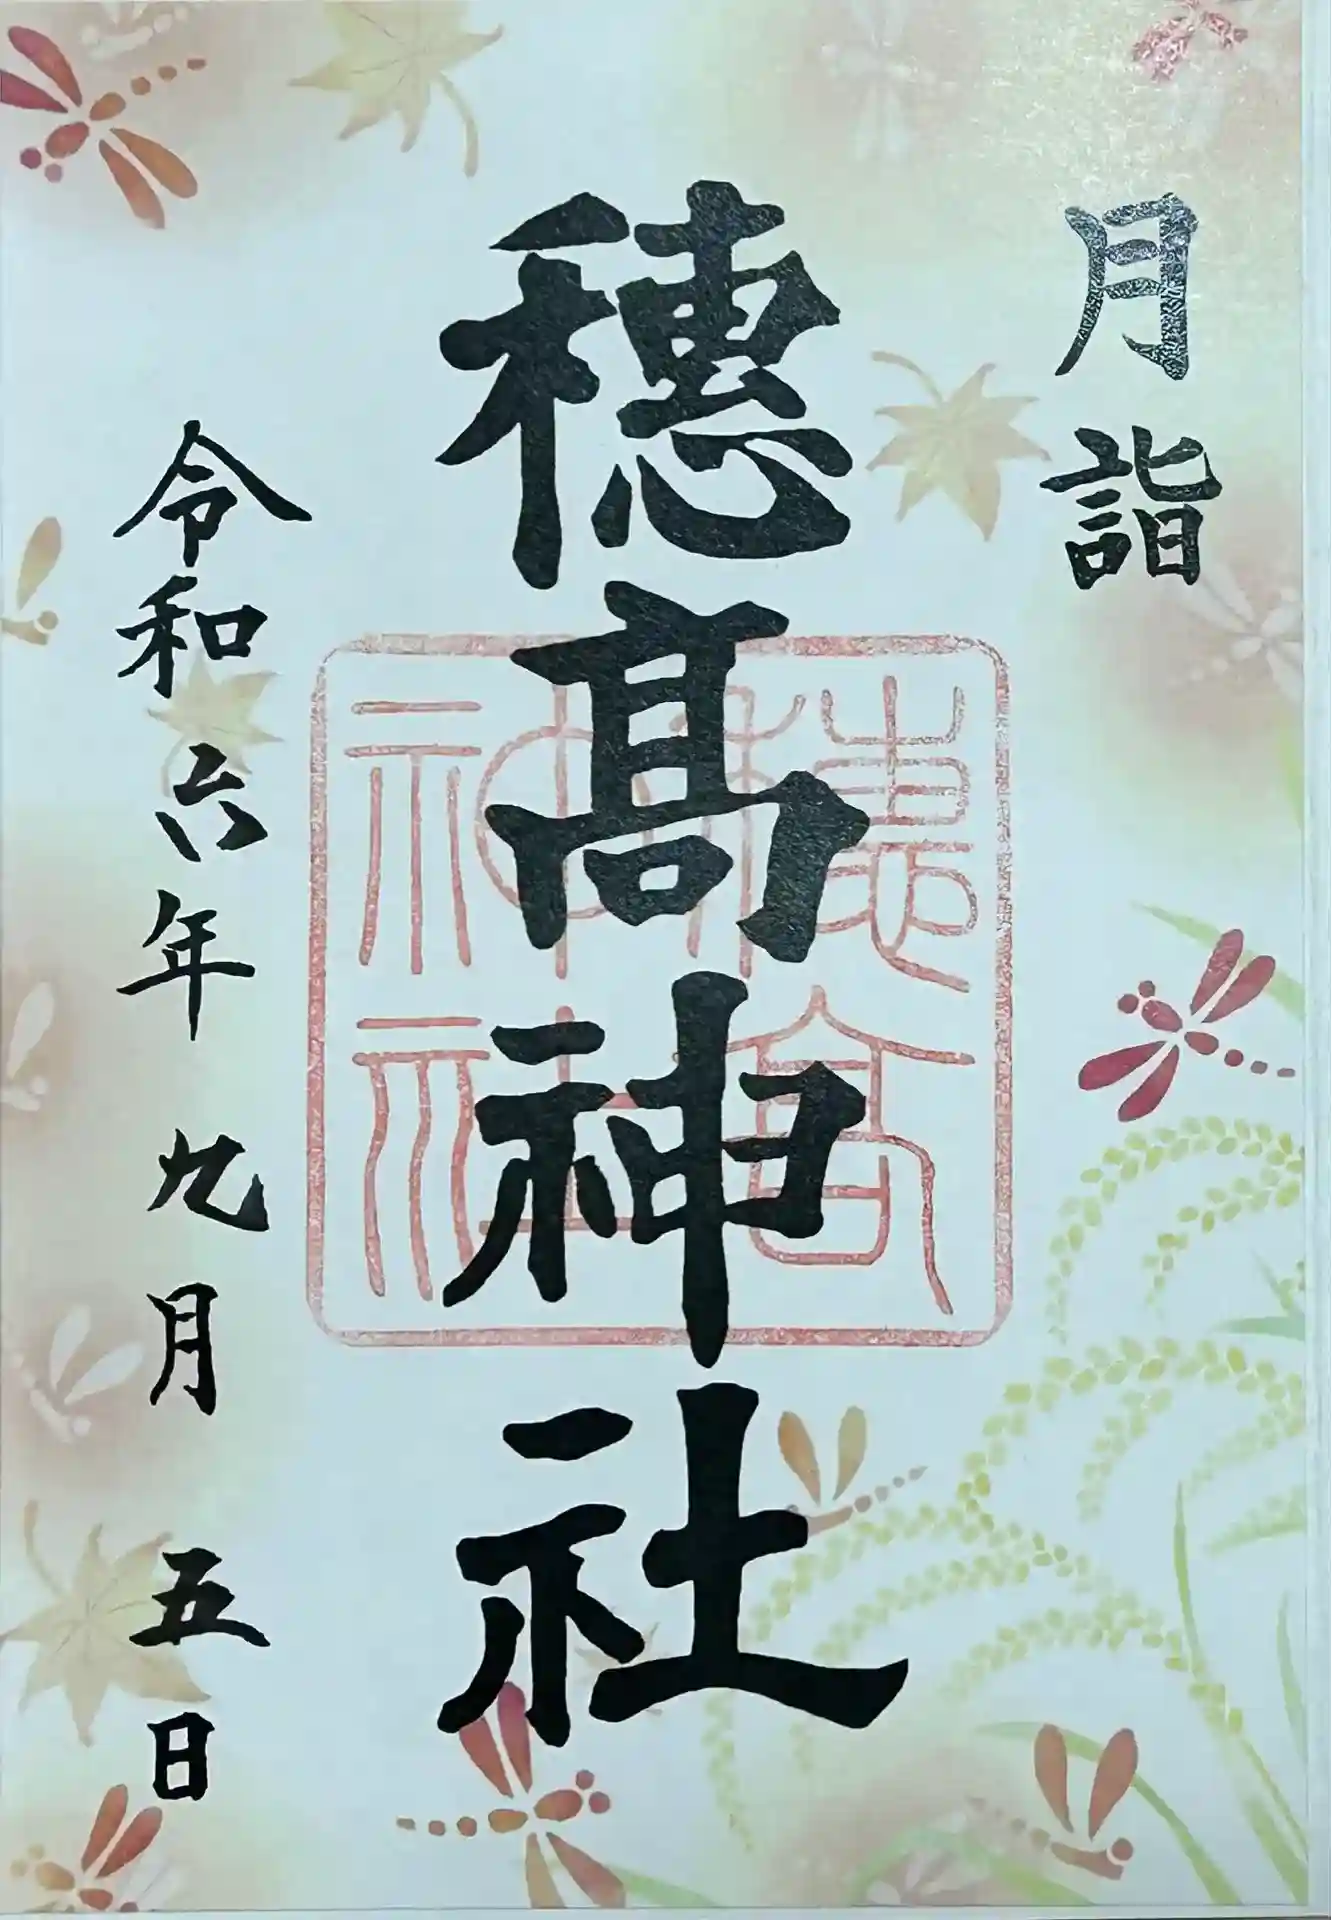 月詣
穗髙神社
穗高神社
令和六年九月五日